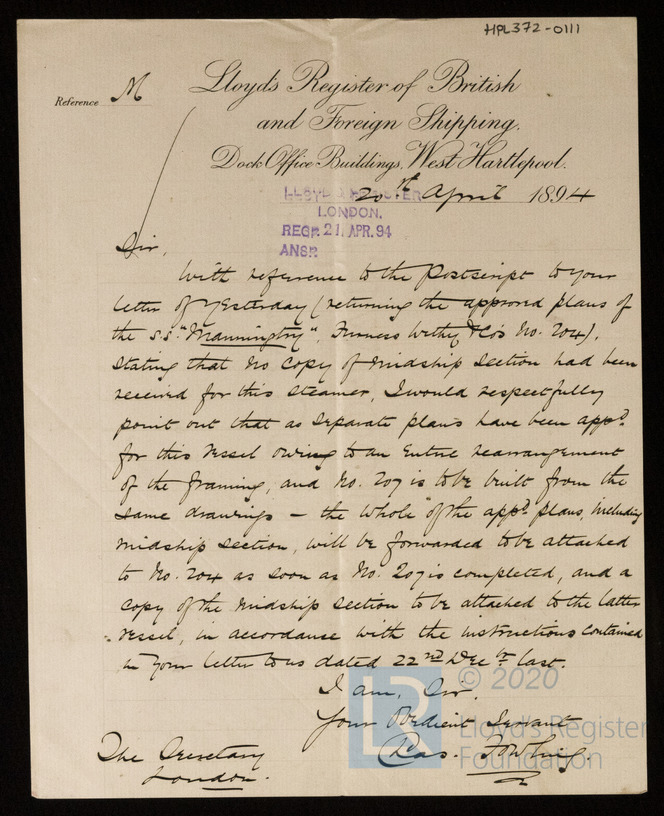 HPL372-0111
Reference M
Lloyd's Register of British
and Foreign Shipping.
Dock Office Buildings, West Hartlepool.
20th April 1894
LLOYD'S REGISTER
LONDON.
REGD. 21. APR. 94
ANSD.
Sir,
With reference to the Postscript to your
letter of yesterday (returning the approved plans of
the S.S. "Mannington", Furness Withy & Co's No. 204),
stating that no copy of midship section had been
received for this steamer, I would respectfully
point out that as separate plans have been appd.
for this vessel owing to an entire rearrangement
of the framing, and No. 207 is to be built from the
same drawings – the whole of the appd. plans, including
midship section, will be forwarded to be attached
to No. 204 as soon as No. 207 is completed, and a
copy of the midship section to be attached to the latter
vessel, in accordance with the instructions contained
in your letter to us dated 22nd Decbr. last.
I am, Sir,
Your Obedient Servant
Chas.
The Secretary
London.
LR
© 2020
Lloyd's Register
Foundation